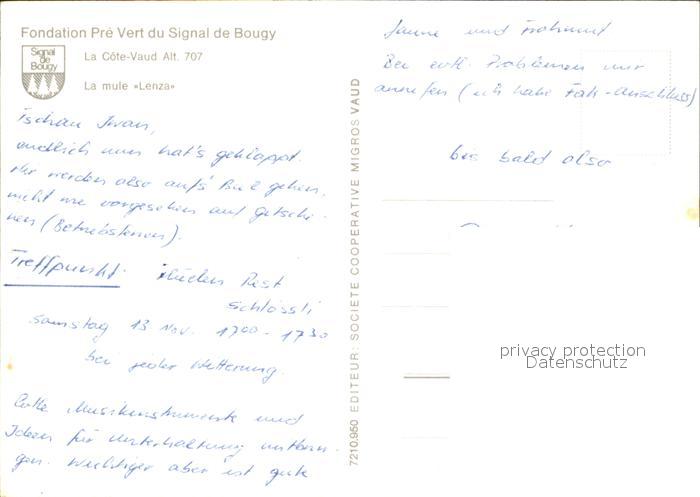 Fondation Pré Vert du Signal de Bougy
Signal
de
Bougy
La Côte-Vaud Alt. 707
La mule «Lenza»
Tschau Iwan,
endlich nun hat's geklappt.
Wir werden also auf's gehen,
nicht wie vorgesehen auf Getschi-
nen (Betriebsferien).
Treffpunkt: Rest
Schlössli
Samstag 13 Nov. 1700 - 1730
bei jeder Witterung.
Bitte Musikinstrumente und
Ideen für Unterhaltung mitbrin-
gen. Wichtiger aber ist gute
Laune und Frohmut
Bei evtl. Problemen nur
anrufen (ich habe Tel.-Anschluss)
bis bald also
7210.950 EDITEUR: SOCIETE COOPERATIVE MIGROS VAUD
privacy protection
Datenschutz